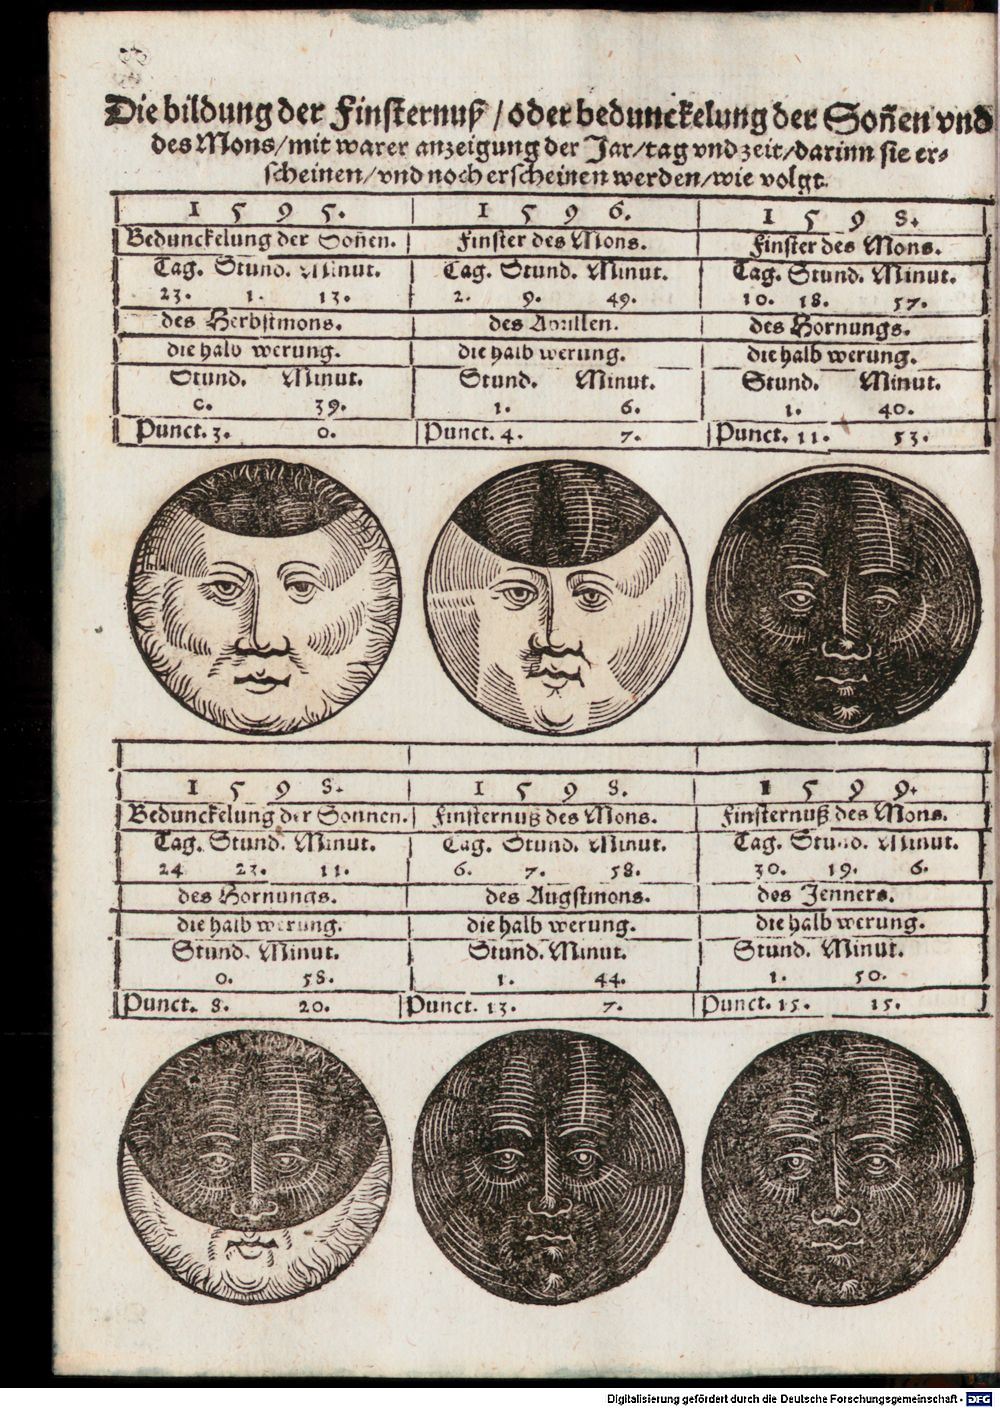 Die bildung der Finsternuß / oder bedunckelung der Soñen vnd
des Mons / mit warer anzeigung der Jar / tag vnd zeit / darinn sie er⸗
scheinen / vnd noch erscheinen werden / wie volgt.
1 5 9 5. 1 5 9 6. 1 5 9 8.
Bedunckelung der Soñen. Finster des Mons. Finster des Mons.
Tag. Stund. Minut. Tag. Stund. Minut. Tag. Stund. Minut.
23. 1. 13. 2. 9. 49. 10. 18. 57.
des Herbstmons. des Aprillen. des Hornungs.
die halb werung. die halb werung. die halb werung.
Stund. Minut. Stund. Minut. Stund. Minut.
0. 39. 1. 6. 1. 40.
Punct. 3. 0. Punct. 4. 7. Punct. 11. 53.
1 5 9 8. 1 5 9 8. 1 5 9 9.
Bedunckelung der Sonnen. Finsternuß des Mons. Finsternuß des Mons.
Tag. Stund. Minut. Tag. Stund. Minut. Tag. Stund. Minut.
24 23. 11. 6. 7. 58. 30. 19. 6.
des Hornungs. des Augstmons. des Jenners.
die halb werung. die halb werung. die halb werung.
Stund. Minut. Stund. Minut. Stund. Minut.
0. 58. 1. 44. 1. 50.
Punct. 8. 20. Punct. 13. 7. Punct. 15. 15.
Digitalisierung gefördert durch die Deutsche Forschungsgemeinschaft - DFG